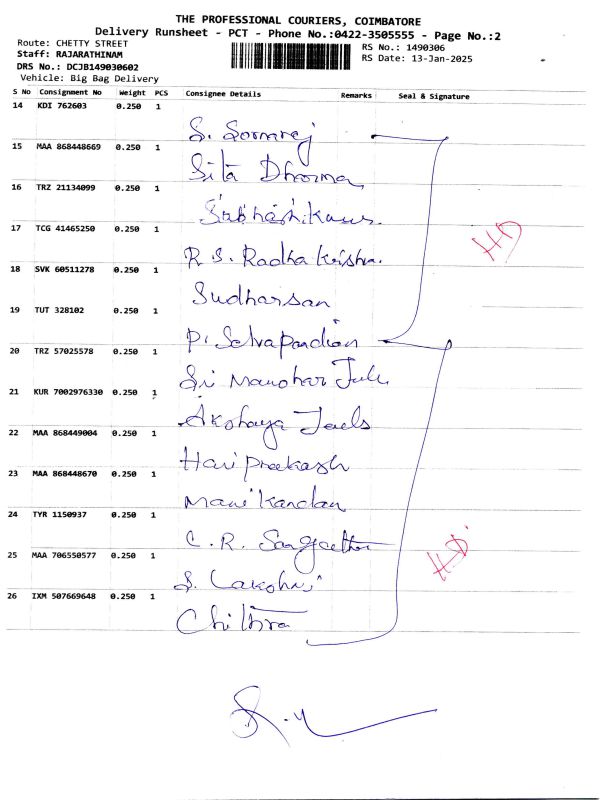 THE PROFESSIONAL COURIERS, COIMBATORE
Delivery Runsheet - PCT - Phone No.:0422-3505555 - Page No.:2
Route: CHETTY STREET
Staff: RAJARATHINAM
DRS No.: DCJB149030602
Vehicle: Big Bag Delivery
RS No.: 1490306
RS Date: 13-Jan-2025
S No Consignment No Weight PCS Consignee Details Remarks Seal & Signature
14 KDI 762603 0.250 1
S. Somaraj
15 MAA 868448669 0.250 1
Sita Dharma
16 TRZ 21134099 0.250 1
17 TCG 41465250 0.250 1
R. S. Radha Krishna.
HD
18 SVK 60511278 0.250 1
Sudharsan
19 TUT 328102 0.250 1
P. Selvapandian
20 TRZ 57025578 0.250 1
Sri Manohar
21 KUR 7002976330 0.250 1
Akshaya
22 MAA 868449004 0.250 1
Hari Prakash
23 MAA 868448670 0.250 1
Manikandan
24 TYR 1150937 0.250 1
C. R.
HD
25 MAA 706550577 0.250 1
S. Lakshmi
26 IXM 507669648 0.250 1
Chithra